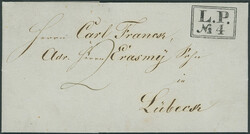 L.P.
№ 4
Herrn Carl France,
Adr. Herrn Erasmy Sohn
in
Lübeck